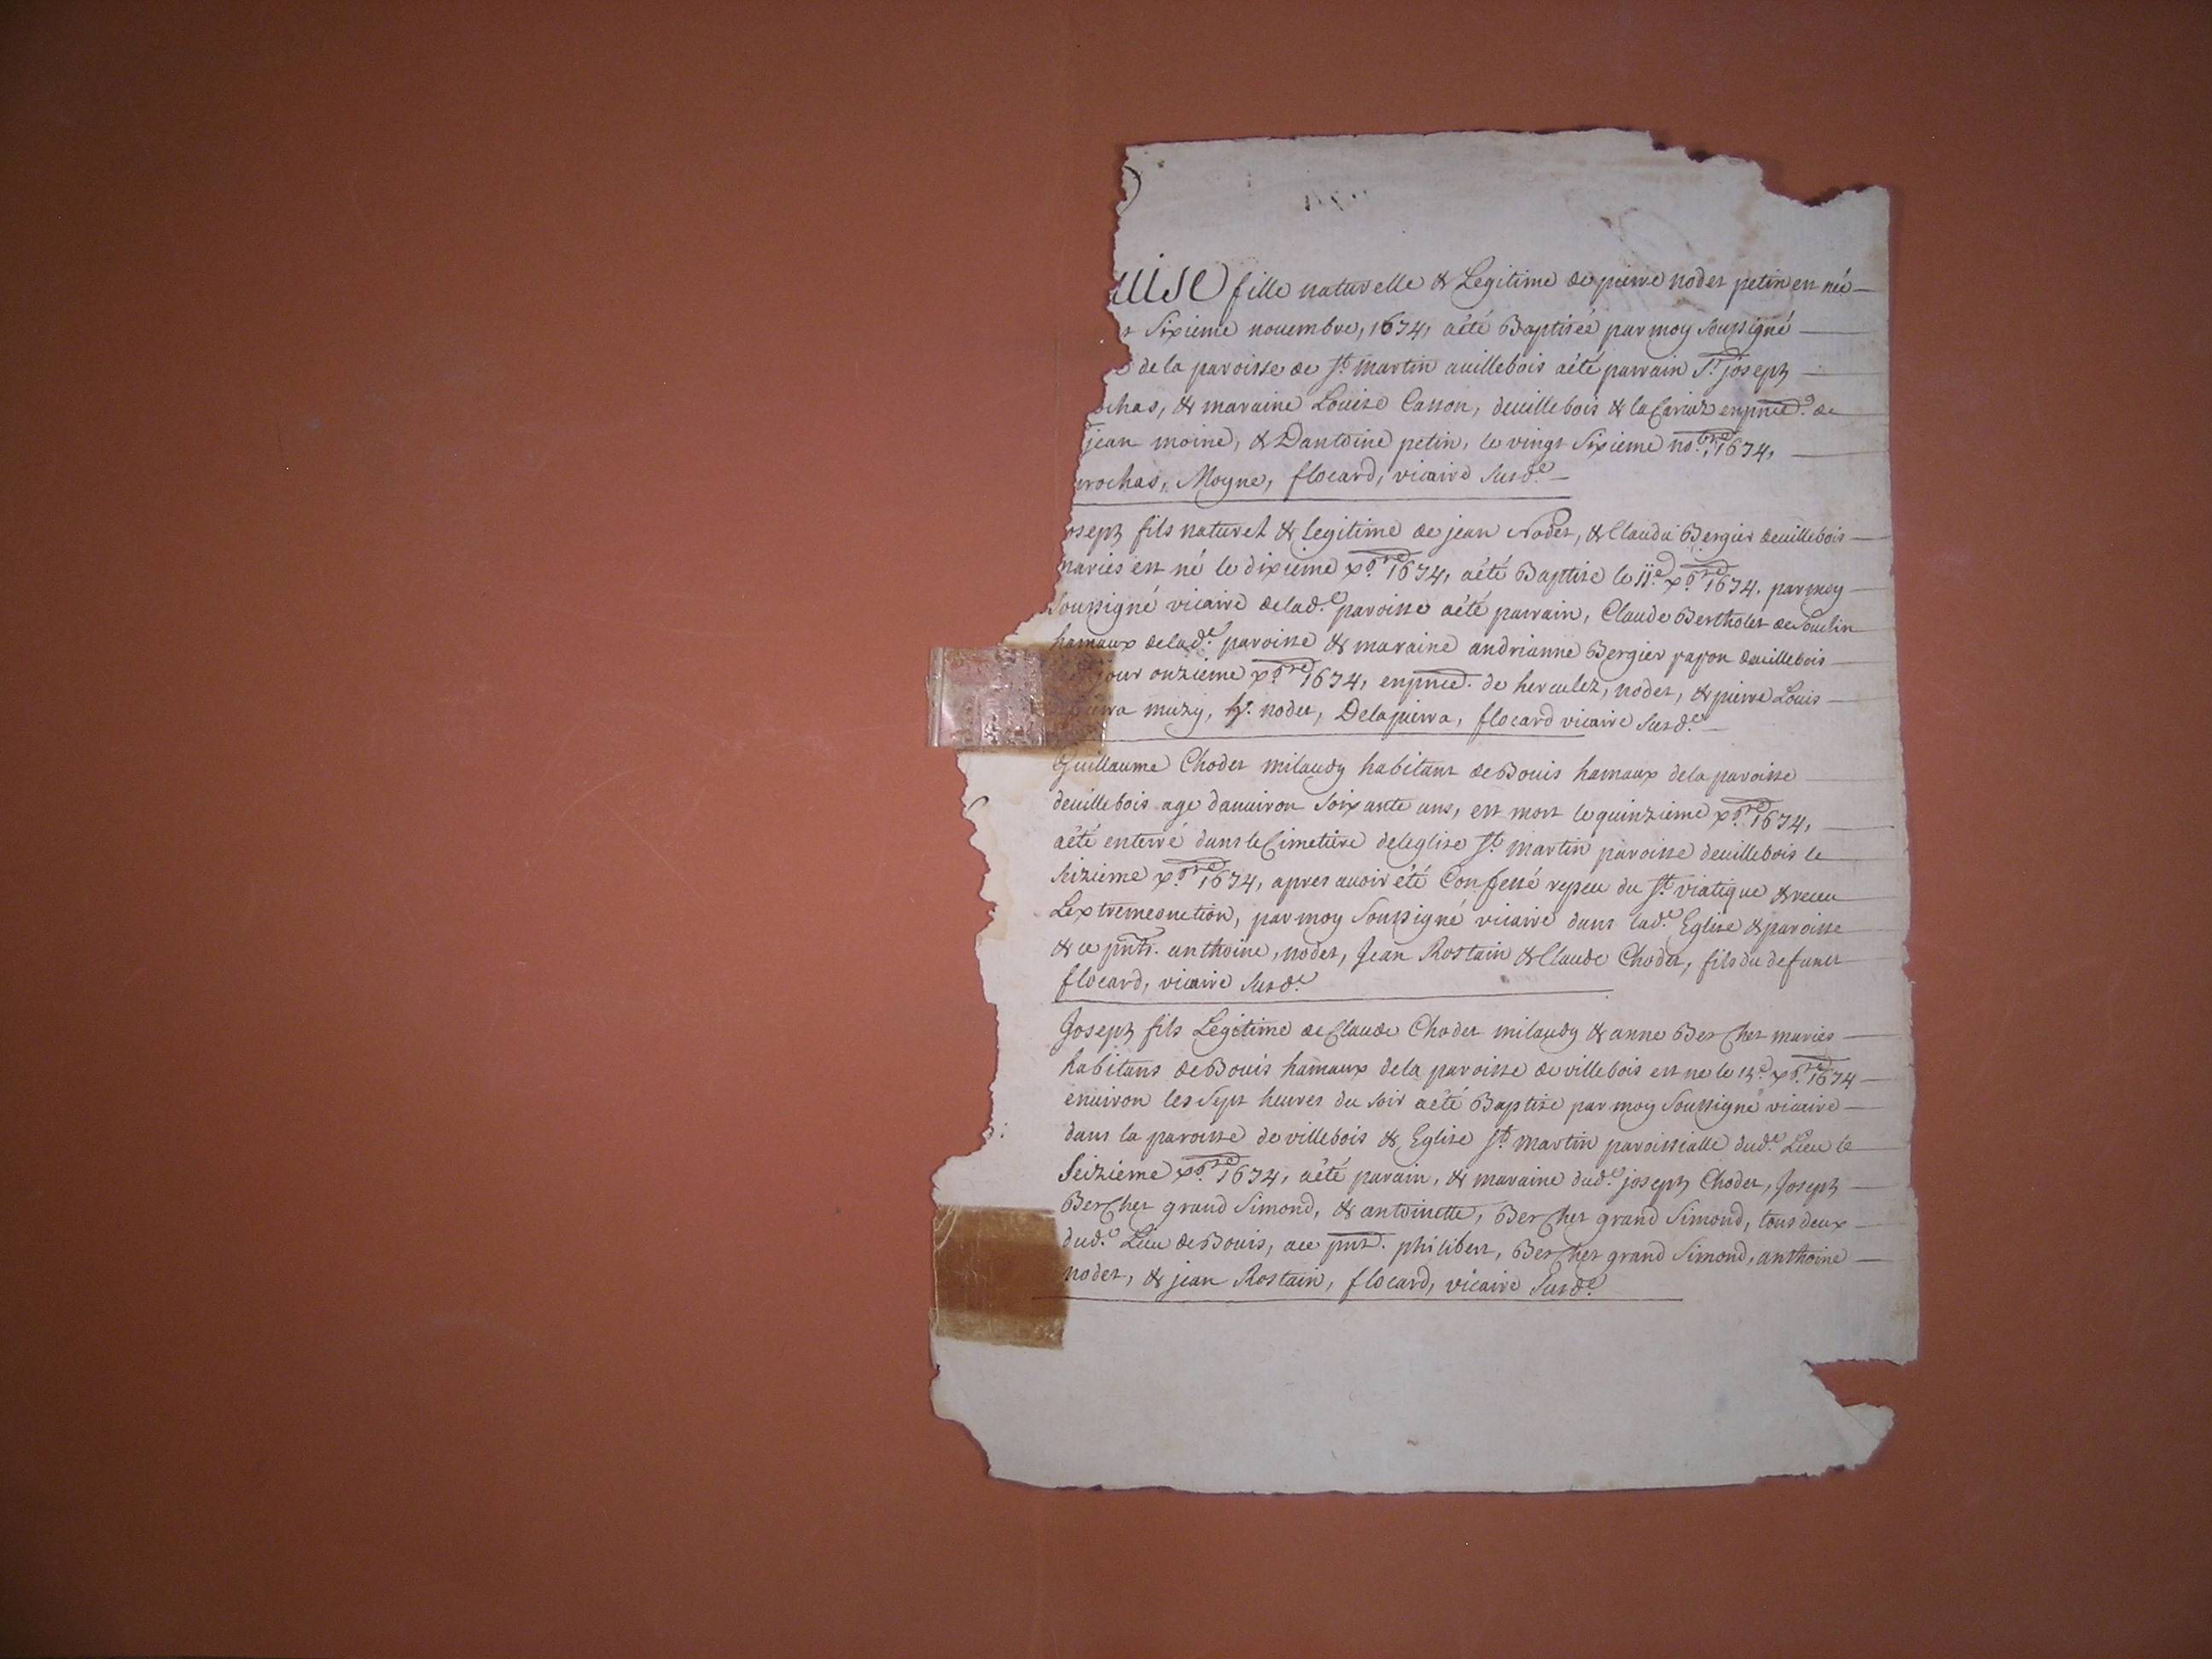 uise fille naturelle & Legitime de pierre nodet petin est née
t Sixieme nouembre, 1674, aété Baptisée par moy soussigné
de la paroisse de st martin auillebois aété parrain Sr joseph
ochas, & maraine Louise Casson, deuillebois & de
jean moine, & Dantoine petin, le vingt Sixieme no.bre 1674,
rochas, Moyne, flocard, vicaire susd.e
oseph fils naturel & legitime de jean Nodet, & Clauda Bergier deuillebois
mariés est né le dixieme xb.re 1674, aété Baptise le 11.e xb.re 1674. par moy
soussigné vicaire delad.e paroisse aété parrain, Claude Bertholet de Souclin
hamaux delad.e paroisse & maraine andrianne Bergier papon deuillebois
jour onzieme xb.re 1674, enpnce. de herculez, nodet, & pierre Louis
muzy, h. nodet, Delapierra, flocard vicaire susd.e
Guillaume Chodet milaudy habitant de Bouis hamaux dela paroisse
deuillebois age danuiron soixante ans, est mort le quinzieme xb.re 1674,
aété enterré dans le Cimetiere deleglise st martin paroisse deuillebois le
seizieme xb.re 1674, apres auoir été Confessé repeu du st viatique & receu
Lextremeonction, par moy soussigné vicaire dans lad.e Eglise & paroisse
& ce pnts. anthoine, nodet, Jean Rostain & Claude Chodet, fils du defunct
flocard, vicaire susd.e
Joseph fils Legitime de Claude Chodet milaudy & anne Berchet mariés
habitans de Bouis hamaux dela paroisse de villebois est ne le 15.e xb.re 1674
enuiron les sept heures du soir aété Baptise par moy soussigné vicaire
dans la paroisse de villebois & Eglise st martin paroissialle dud.e Lieu le
Seizieme xb.re 1674, aété parain, & maraine dud.e joseph Chodet, Joseph
Berchet grand Simond, & antoinette, Berchet grand Simond, tous deux
dud.e Lieu de Bouis, ace pnt. philibert, Berchet grand Simond, anthoine
nodet, & jean Rostain, flocard, vicaire susd.e